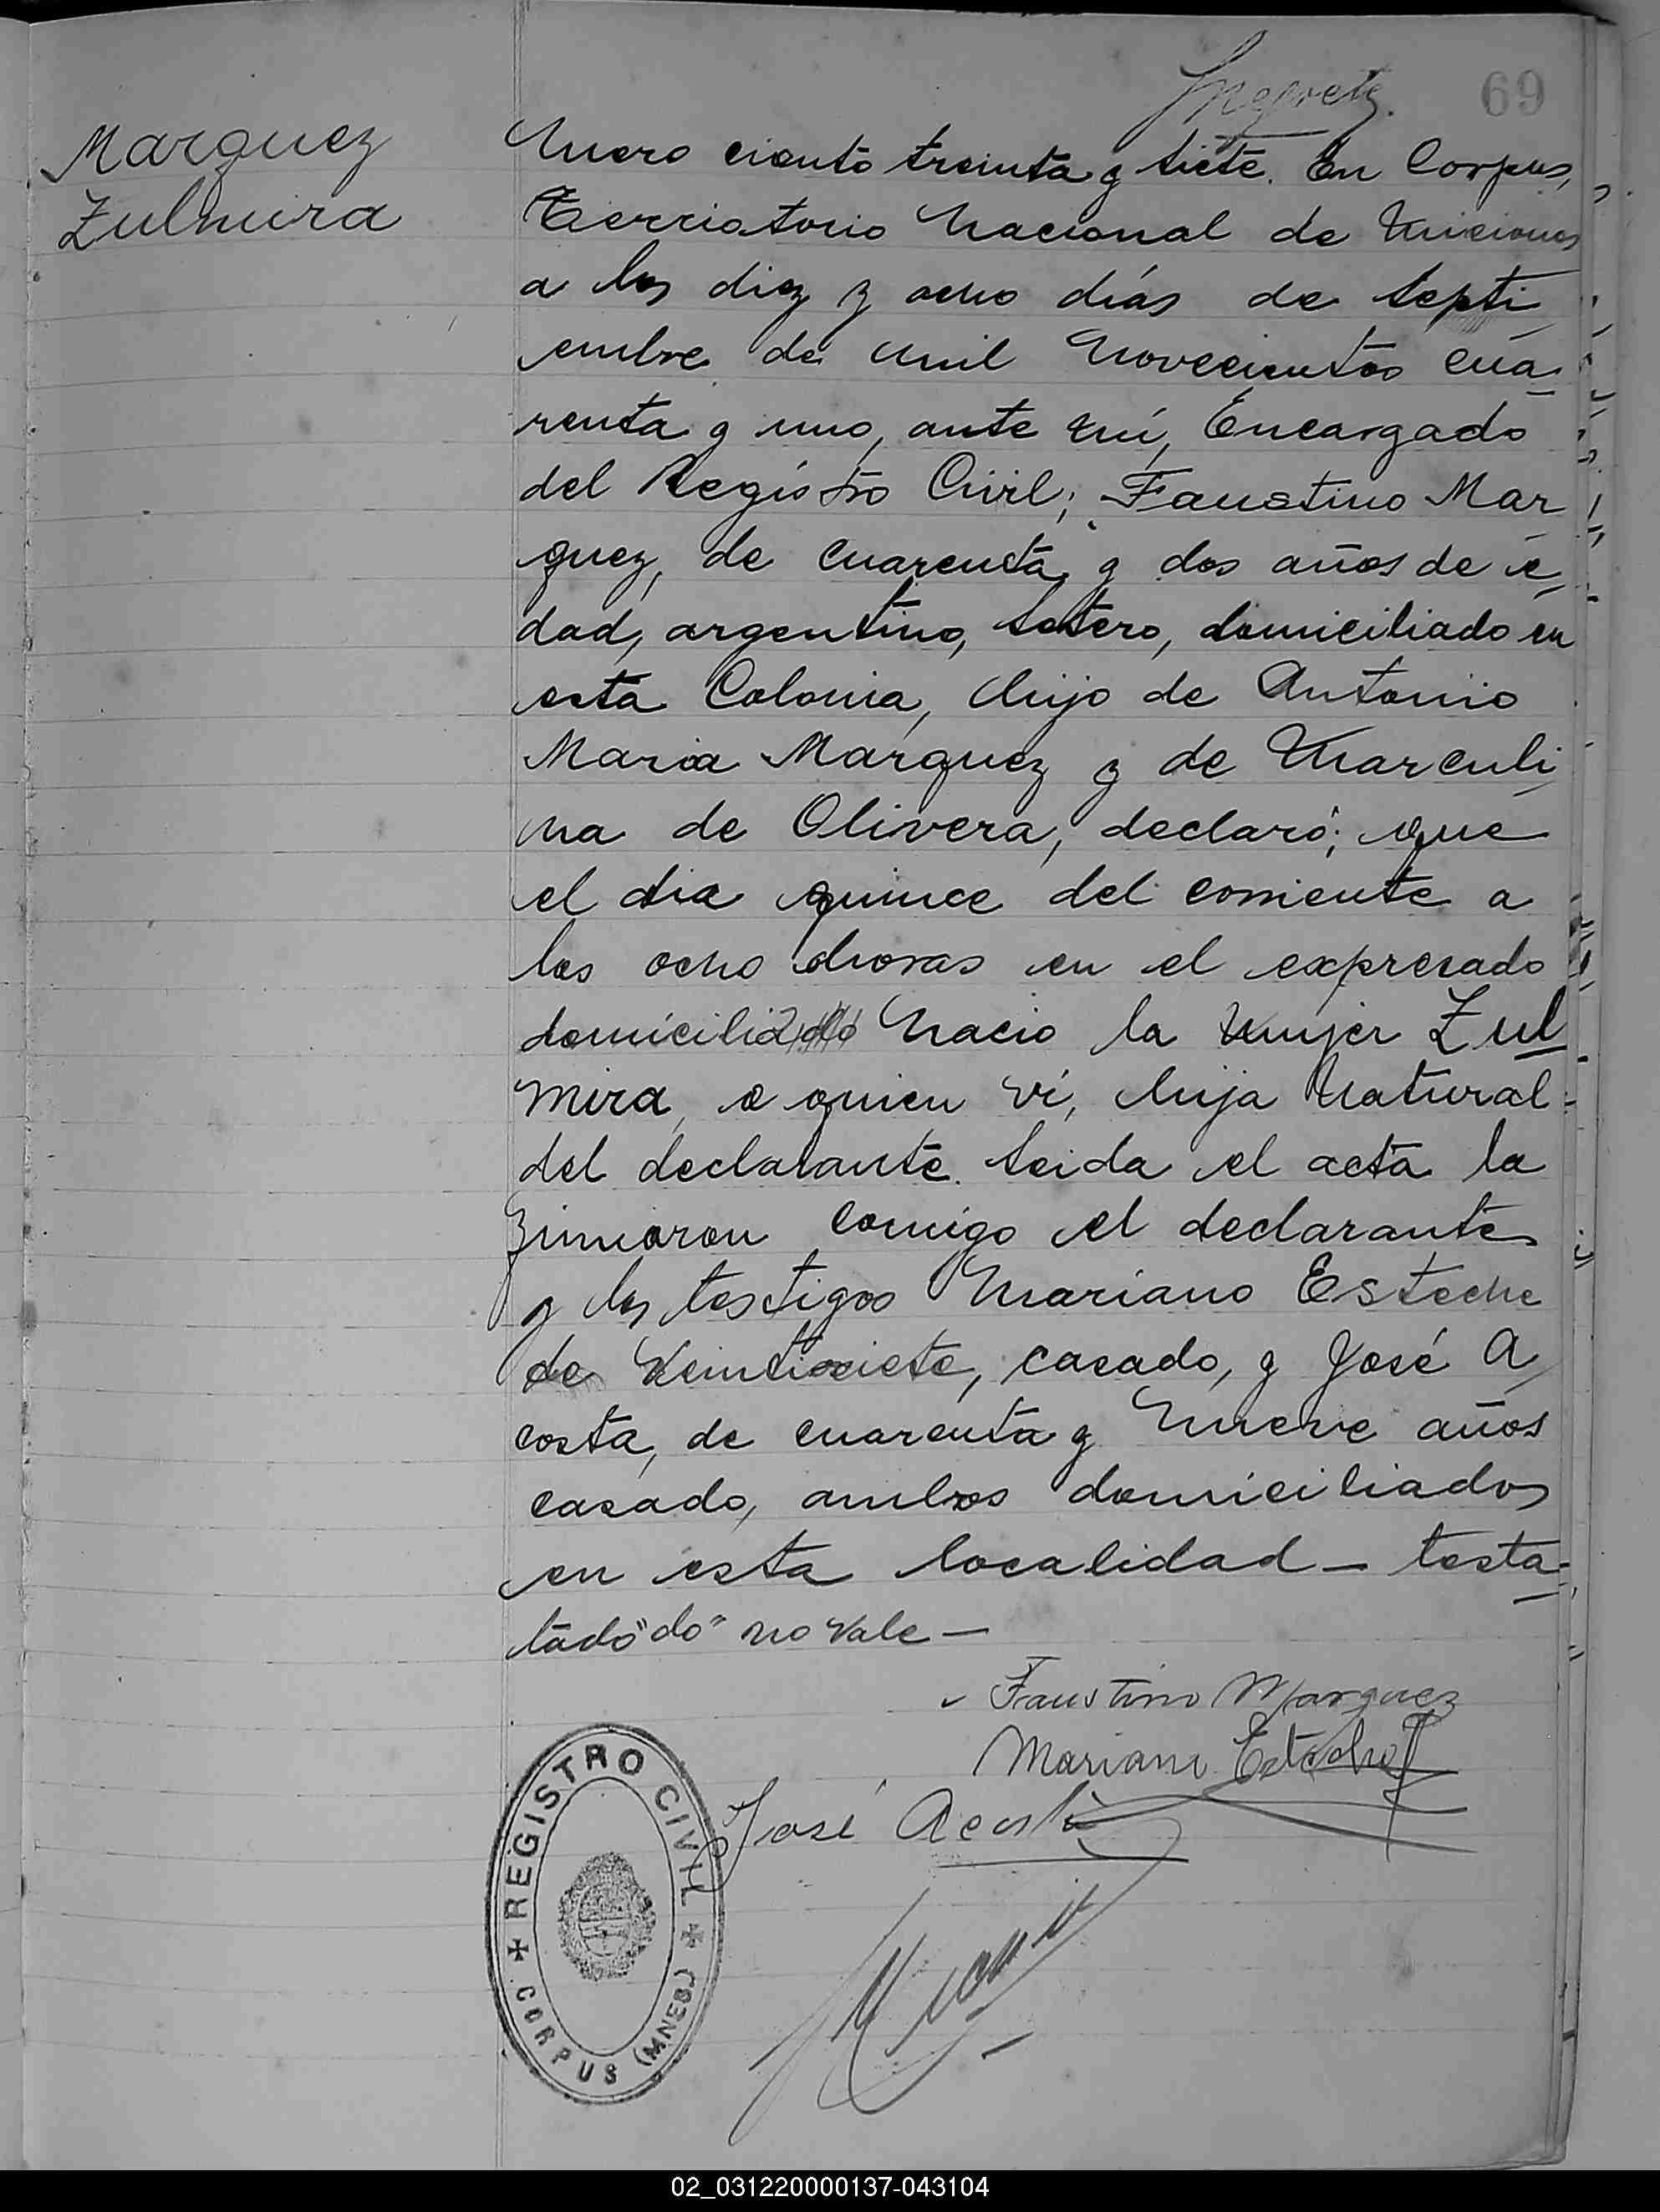 69
Marquez
Zulmira
Nuero ciento treinta y siete. En Corpus,
Terriotorio Nacional de Misiones
a los diez y ocho días de Septi
embre de mil novecientos cua
renta y uno, ante mí, Encargado
del Registro Civil; Faustino Mar
quez, de cuarenta y dos años de e
dad, argentino, soltero, domiciliado en
esta Colonia, hijo de Antonio
Maria Marquez y de Marculi
na de Olivera, declaró; que
el dia quince del corriente a
las ocho horas en el expresado
domicilio nacio la mujer Zul
mira, a quien ví, hija natural
del declarante. Leida el acta la
firmaron comigo el declarante
y los testigos Mariano Esteche
de veintisiete, casado, y José A
costa, de cuarenta y nueve años
casado, ambos domiciliados
en esta localidad – testa
tado "do" no vale –
Faustino Marquez
Mariano Esteche
José Acosta
REGISTRO CIVIL
CORPUS (MNES.)
02_031220000137-043104